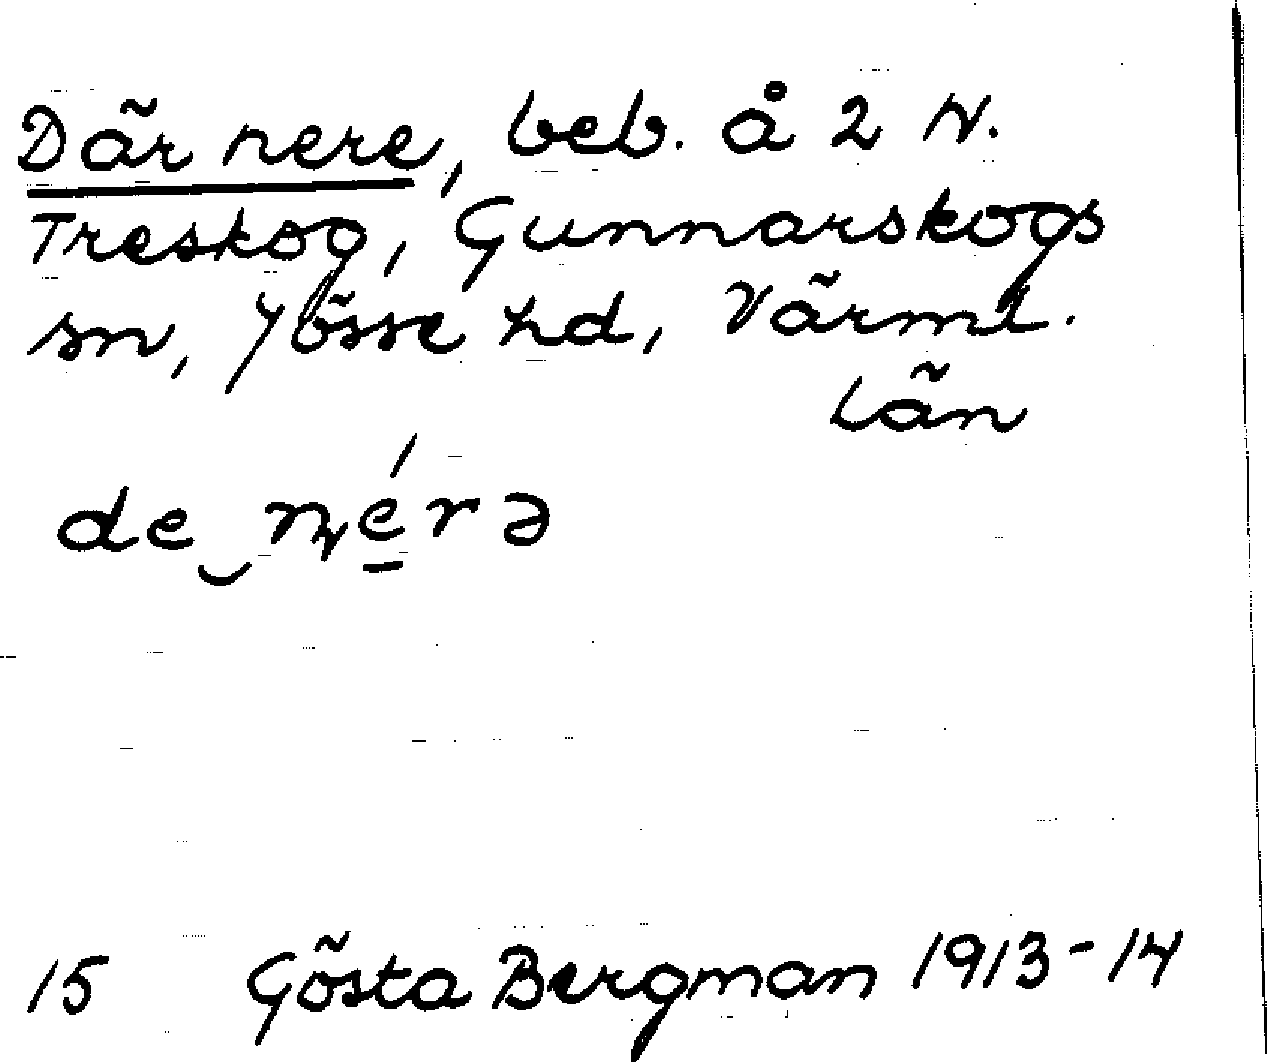 Där nere, beb. å 2 N.
Treskog, Gunnarskogs
sn, Jösse hd, Värml.
län
de‿ɳé̠rə
15 Gösta Bergman 1913-14